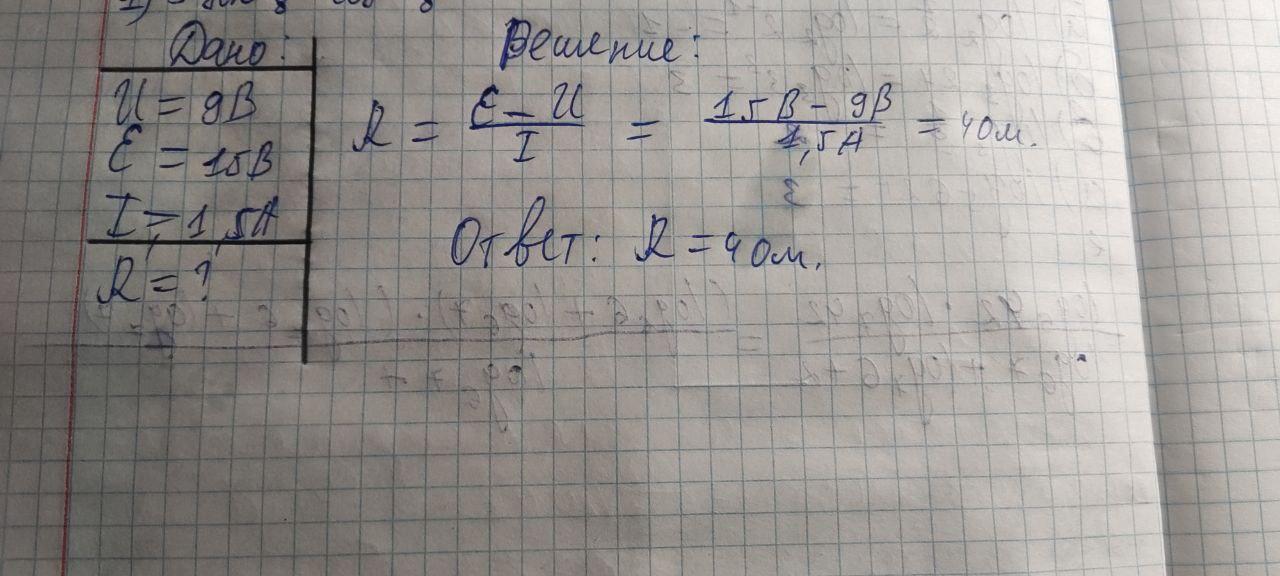 Дано:
U = 9В
Ɛ = 15В
I = 1,5А
R = ?
Решение:
R = Ɛ - U / I = 15В - 9В / 1,5А = 4 Ом.
Ответ: R = 4 Ом.